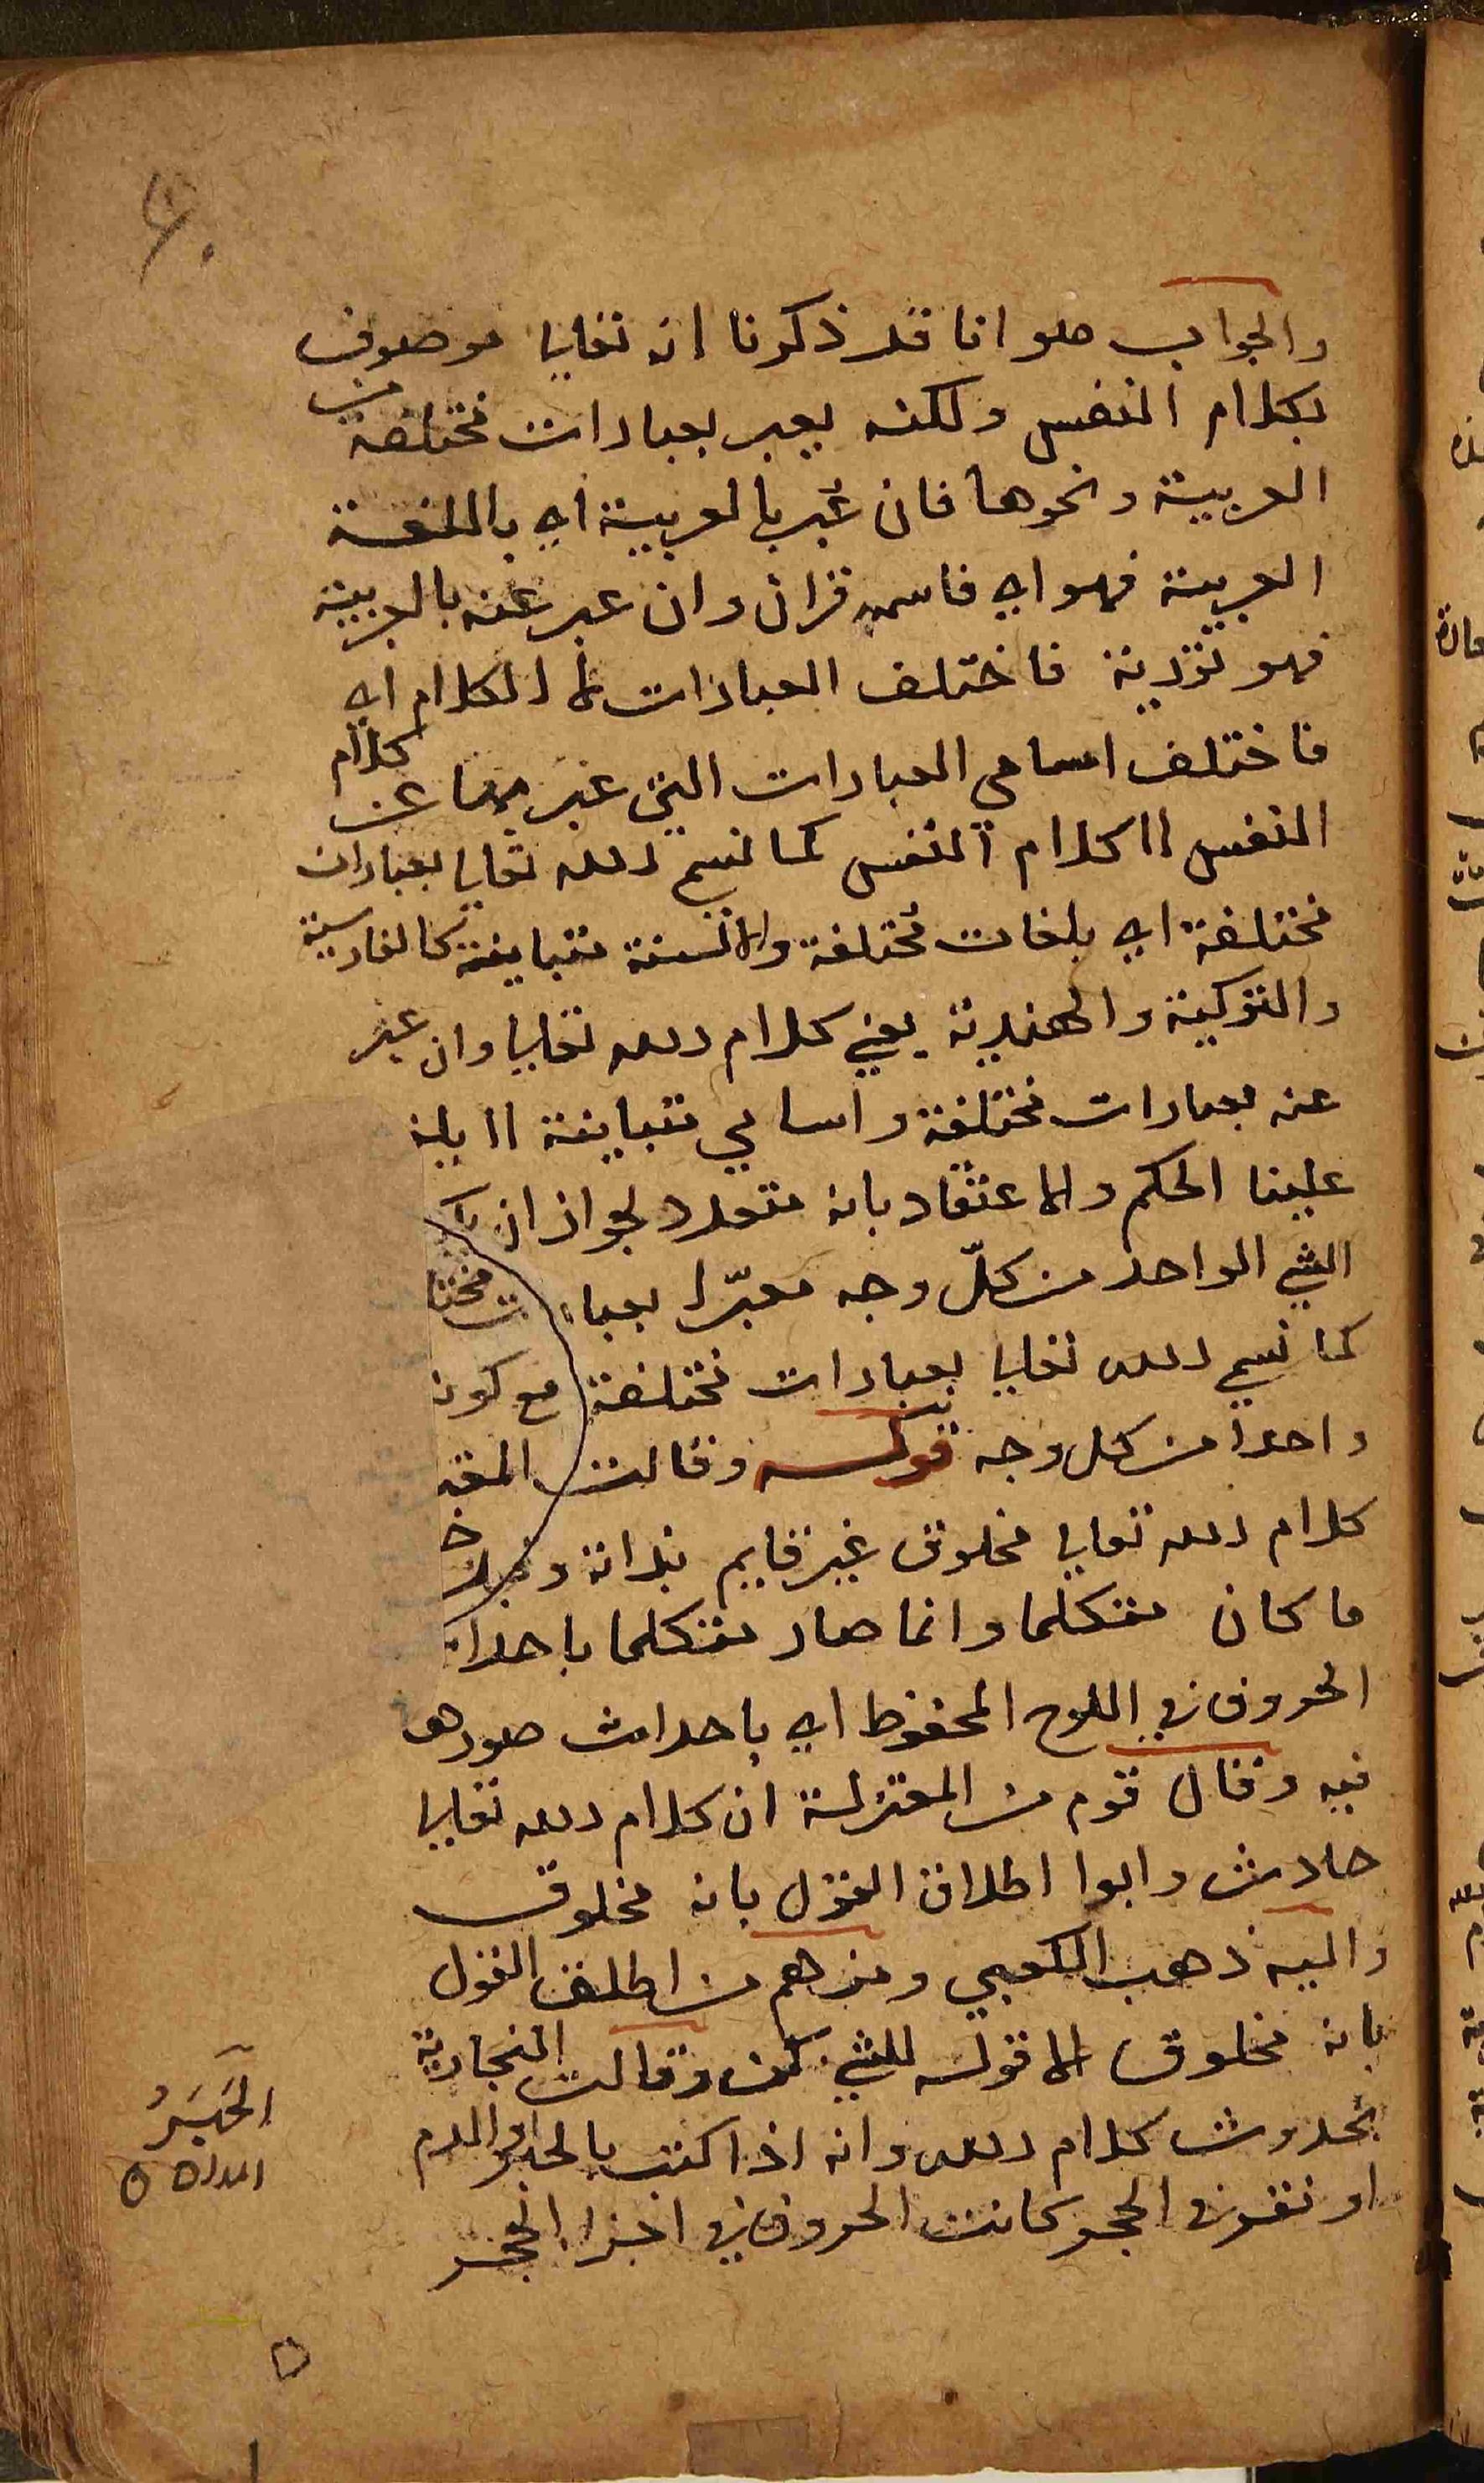 والجواب هو انا قد ذكرنا انه تعالى موصوف
بكلام النفس ولكنه يعبر بعبارات مختلفة من
العربية ونحوها فان عبر بالعربية اي باللغة
العربية فهو اي فاسمه قران وان عبر عنه بالعربية
فهو تورية فاختلف العبارات لا الكلام اي
فاختلف اسامي العبارات التي عبر بها عن كلام
النفس لا كلام النفس كما نسمي الله تعالى بعبارات
مختلفة اي بلغات مختلفة والسنة متباينة كالفارسية
والتركية والهندية يعني كلام الله تعالى وان عبر
عنه بعبارات مختلفة واسامي متباينة لا يلز
علينا الحكم والاعتقاد بانه متعدد لجواز ان يك
الشي الواحد من كلّ وجه معبّرا بعبا ت مختا
كما نسمي الله تعالى بعبارات مختلفة مع كونه
واحدا من كل وجه قوله وقالت المعتز
كلام الله تعالى مخلوق غير قايم بذاته و
ما كان متكلما وانما صار متكلما باحدا
الحروف في اللوح المحفوظ اي باحداث صورها
فيه وقال قوم من المعتزلة ان كلام الله تعالى
حادث وابوا اطلاق القول بانه مخلوق
واليه ذهب الكعبي ومنهم من اطلق القول
بانه مخلوق الا قوله للشي كن وقالت النجارية
بحدوث كلام الله وانه اذا كتب بالحبر او الدم
او نقر في الحجر كانت الحروف في اجزا الحجر
الحَبَرُ
المداد